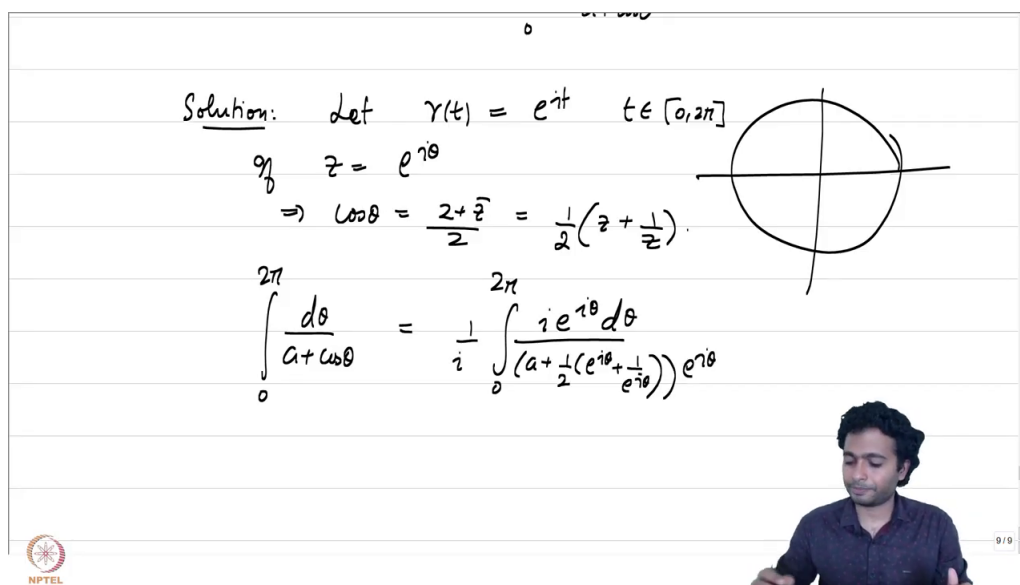 0
Solution: Let γ(t) = e^{it} t ∈ [0, 2π]
If z = e^{iθ}
⇒ cosθ = \frac{z + \bar{z}}{2} = \frac{1}{2}(z + \frac{1}{z}).
\int_0^{2π} \frac{dθ}{a + cosθ} = \frac{1}{i} \int_0^{2π} \frac{i e^{iθ} dθ}{(a + \frac{1}{2}(e^{iθ} + \frac{1}{e^{iθ}})) e^{iθ}}
9/9
NPTEL